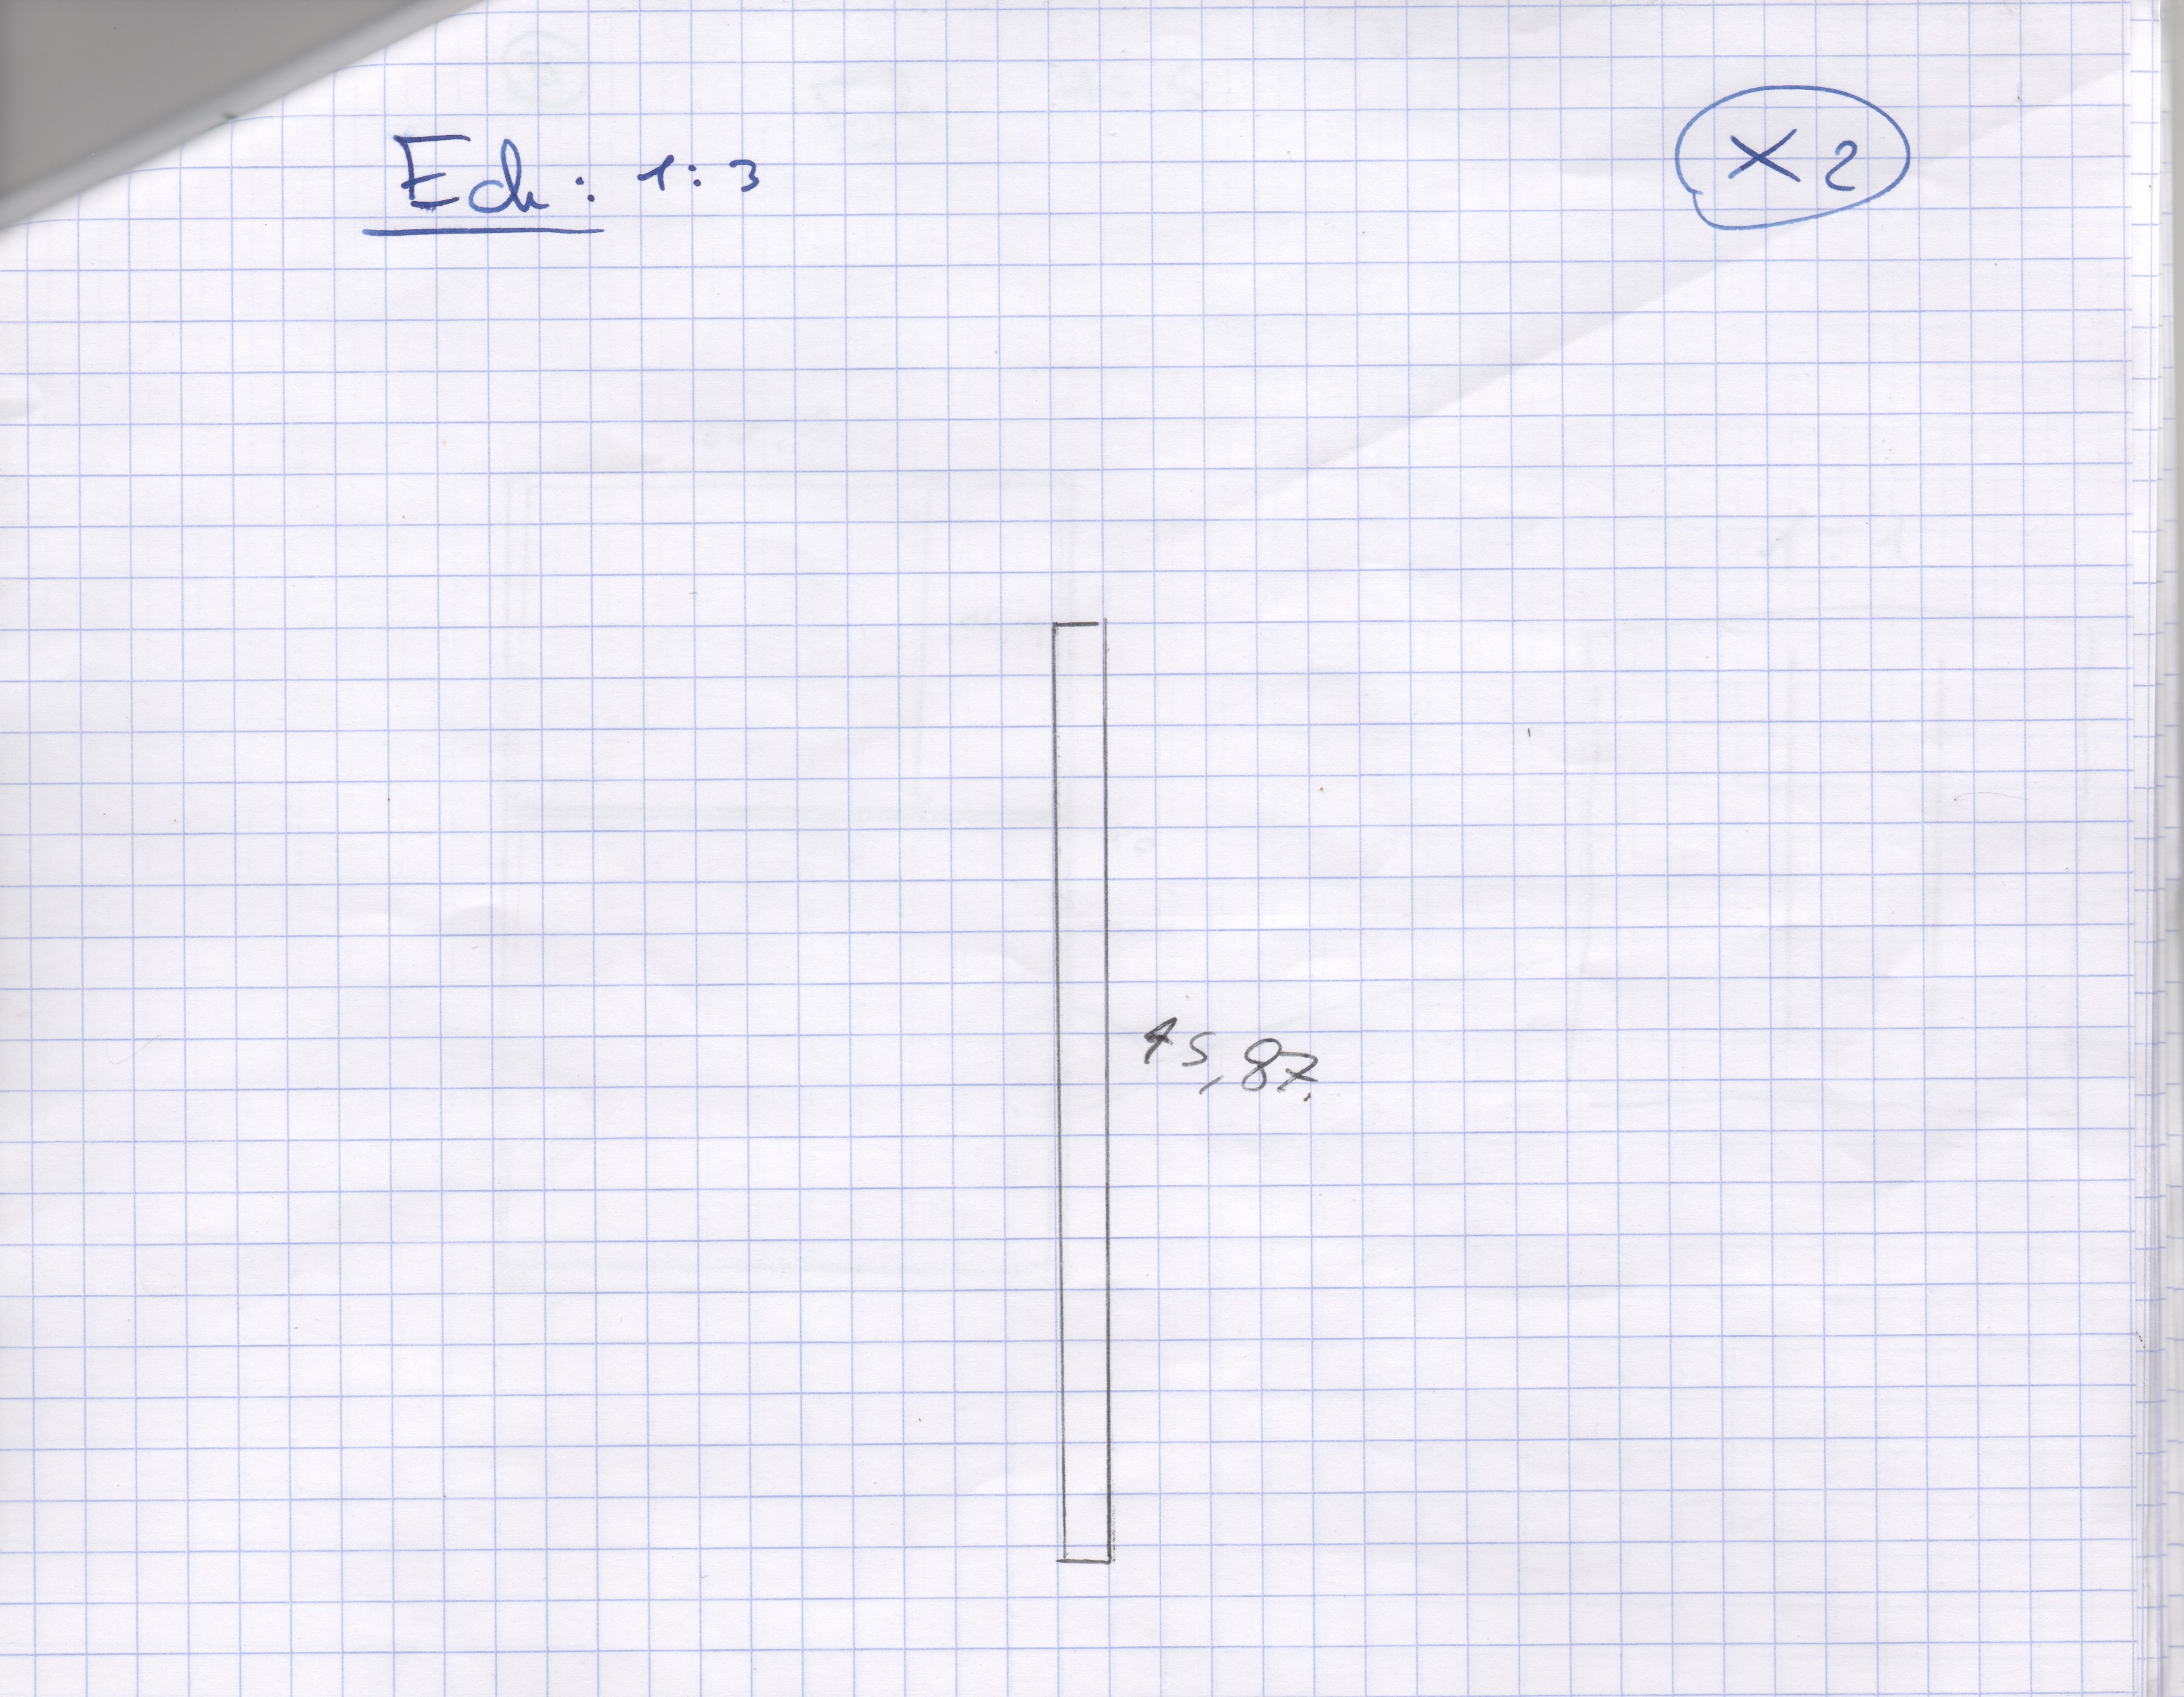 Ech : 1:3
X 2
45,87